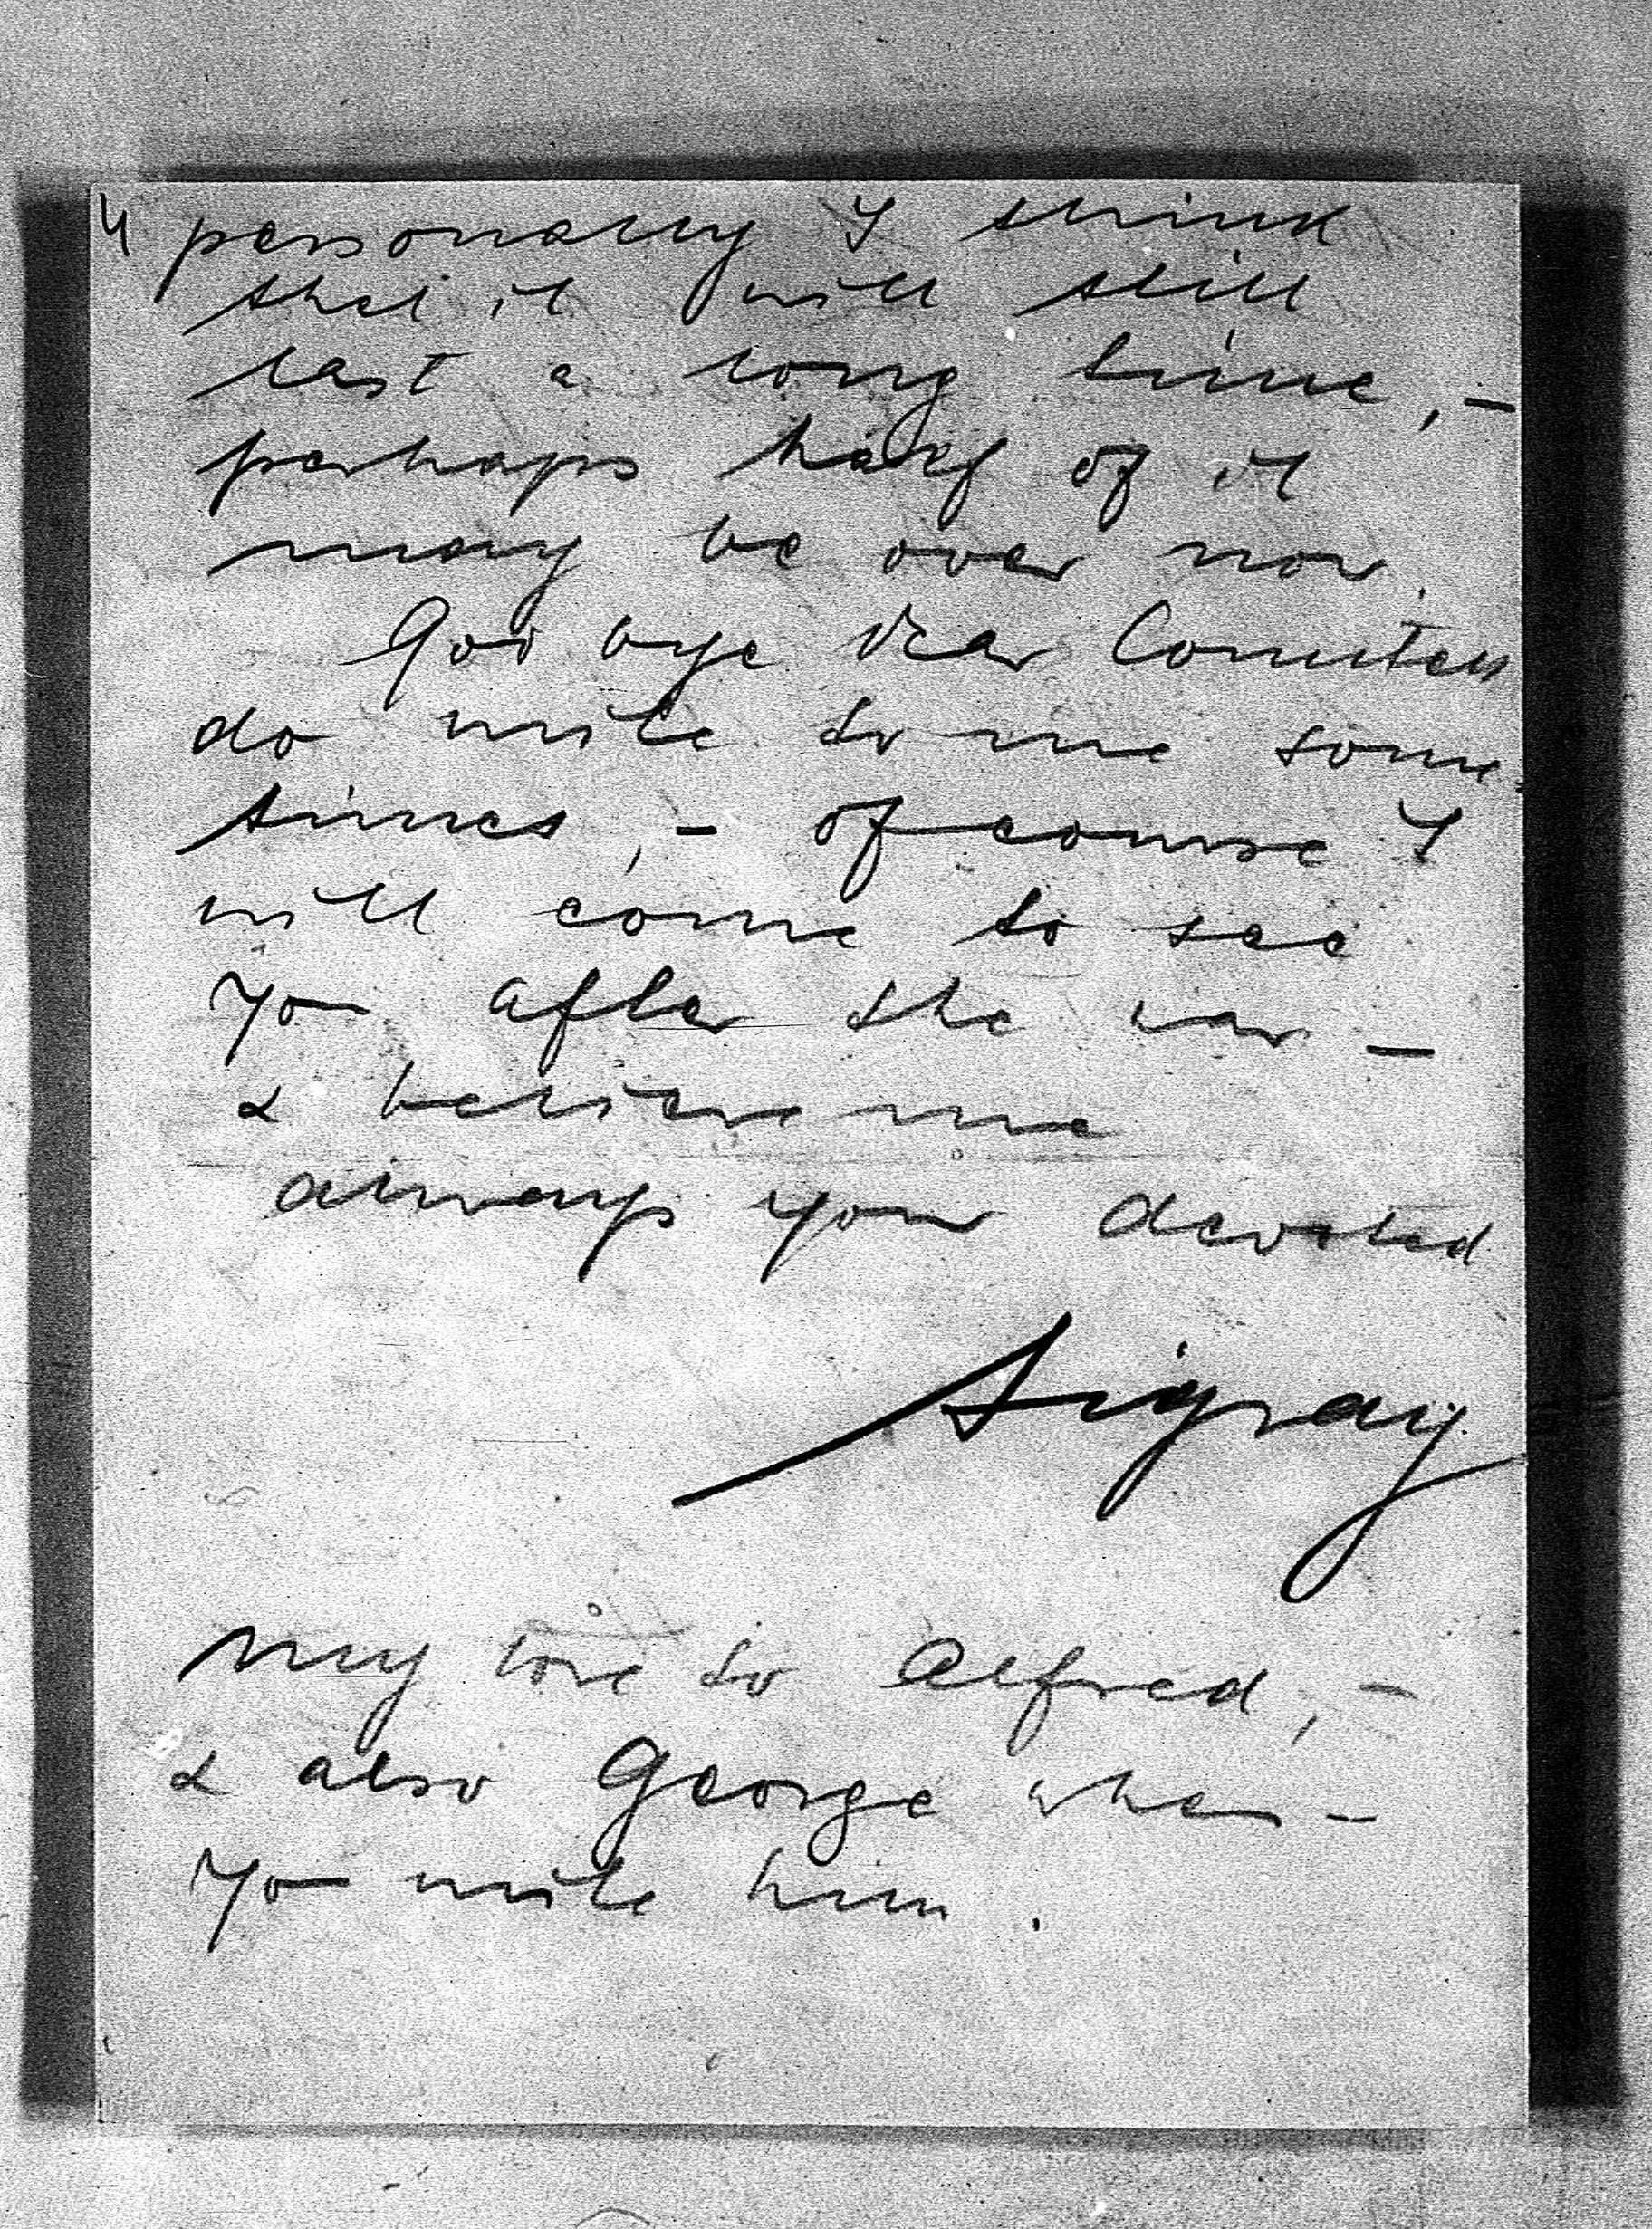 4 personally I think
that it will still
last a long time, -
perhaps half of it
may be over now.
Good bye dear Countess
do write to me some-
times, - of course I
will come to see
you after the war -
& believe me
always your devoted
Sigray
My love to Alfred, -
& also George when -
you write him.